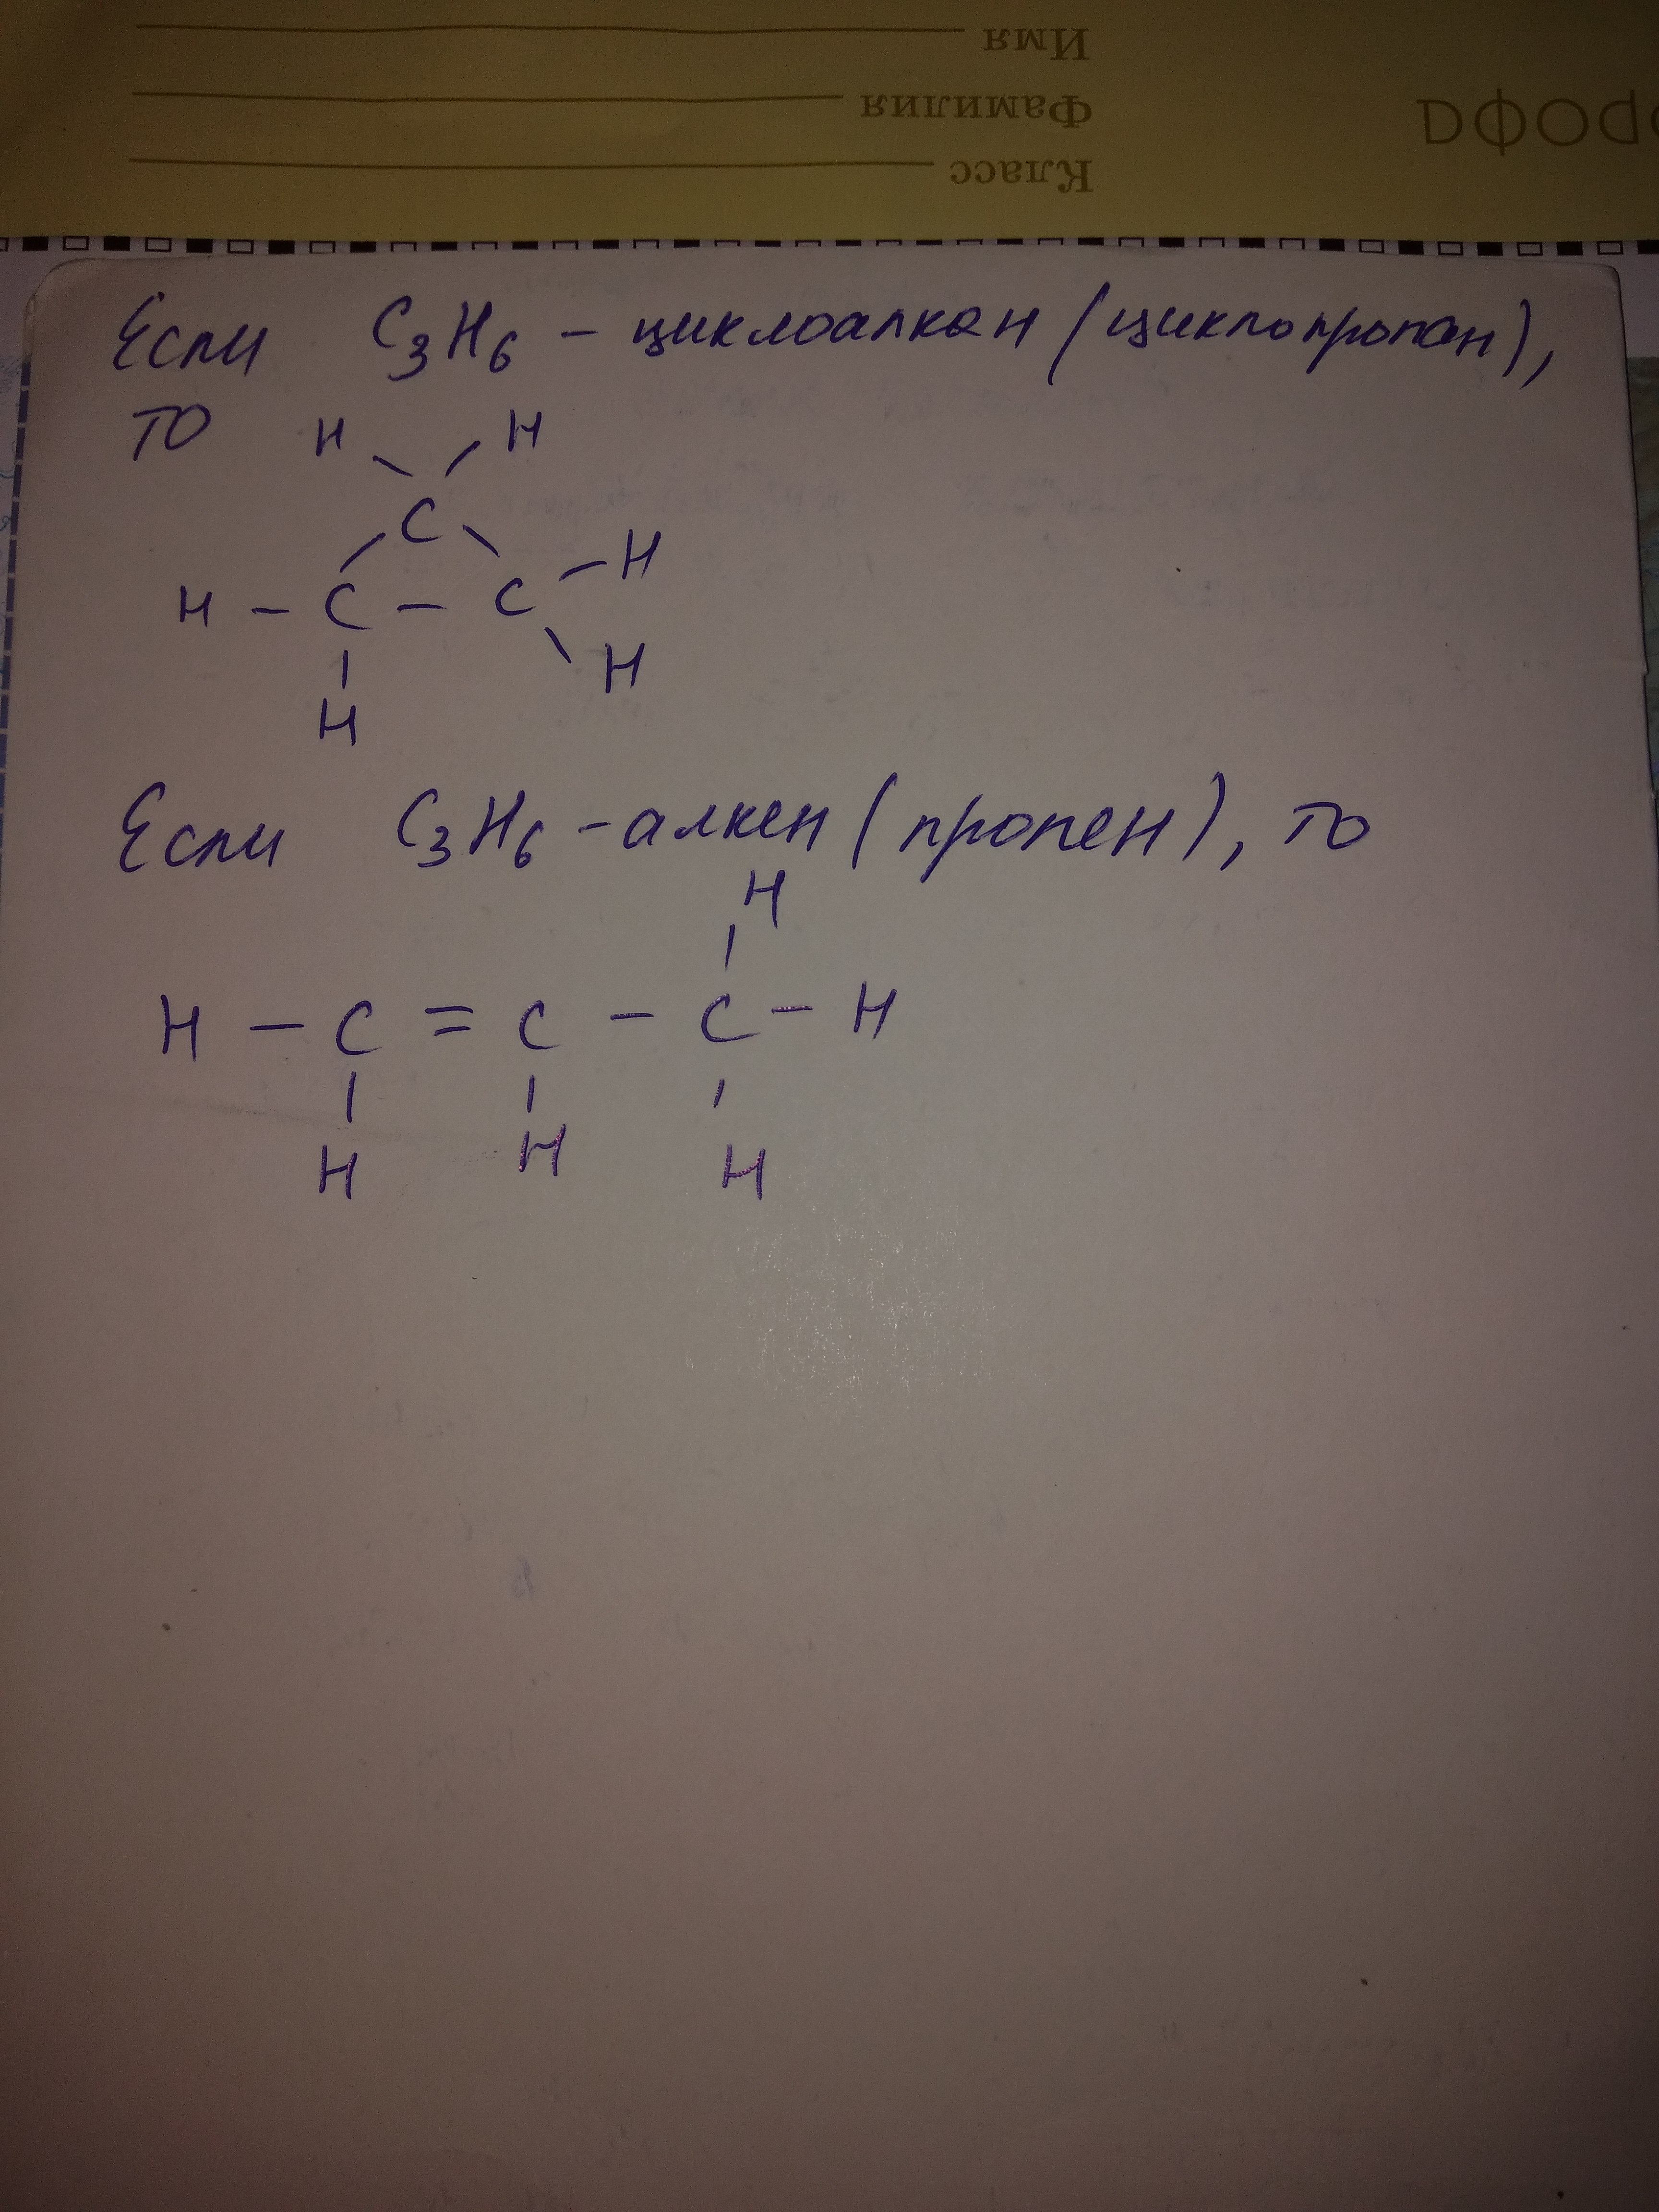 Имя
Фамилия
Класс
Если C₃H₆ – циклоалкан (циклопропан),
то H H
C
H – C – C – H
H H
Если C₃H₆ – алкен (пропен), то
H
H – C = C – C – H
H H H